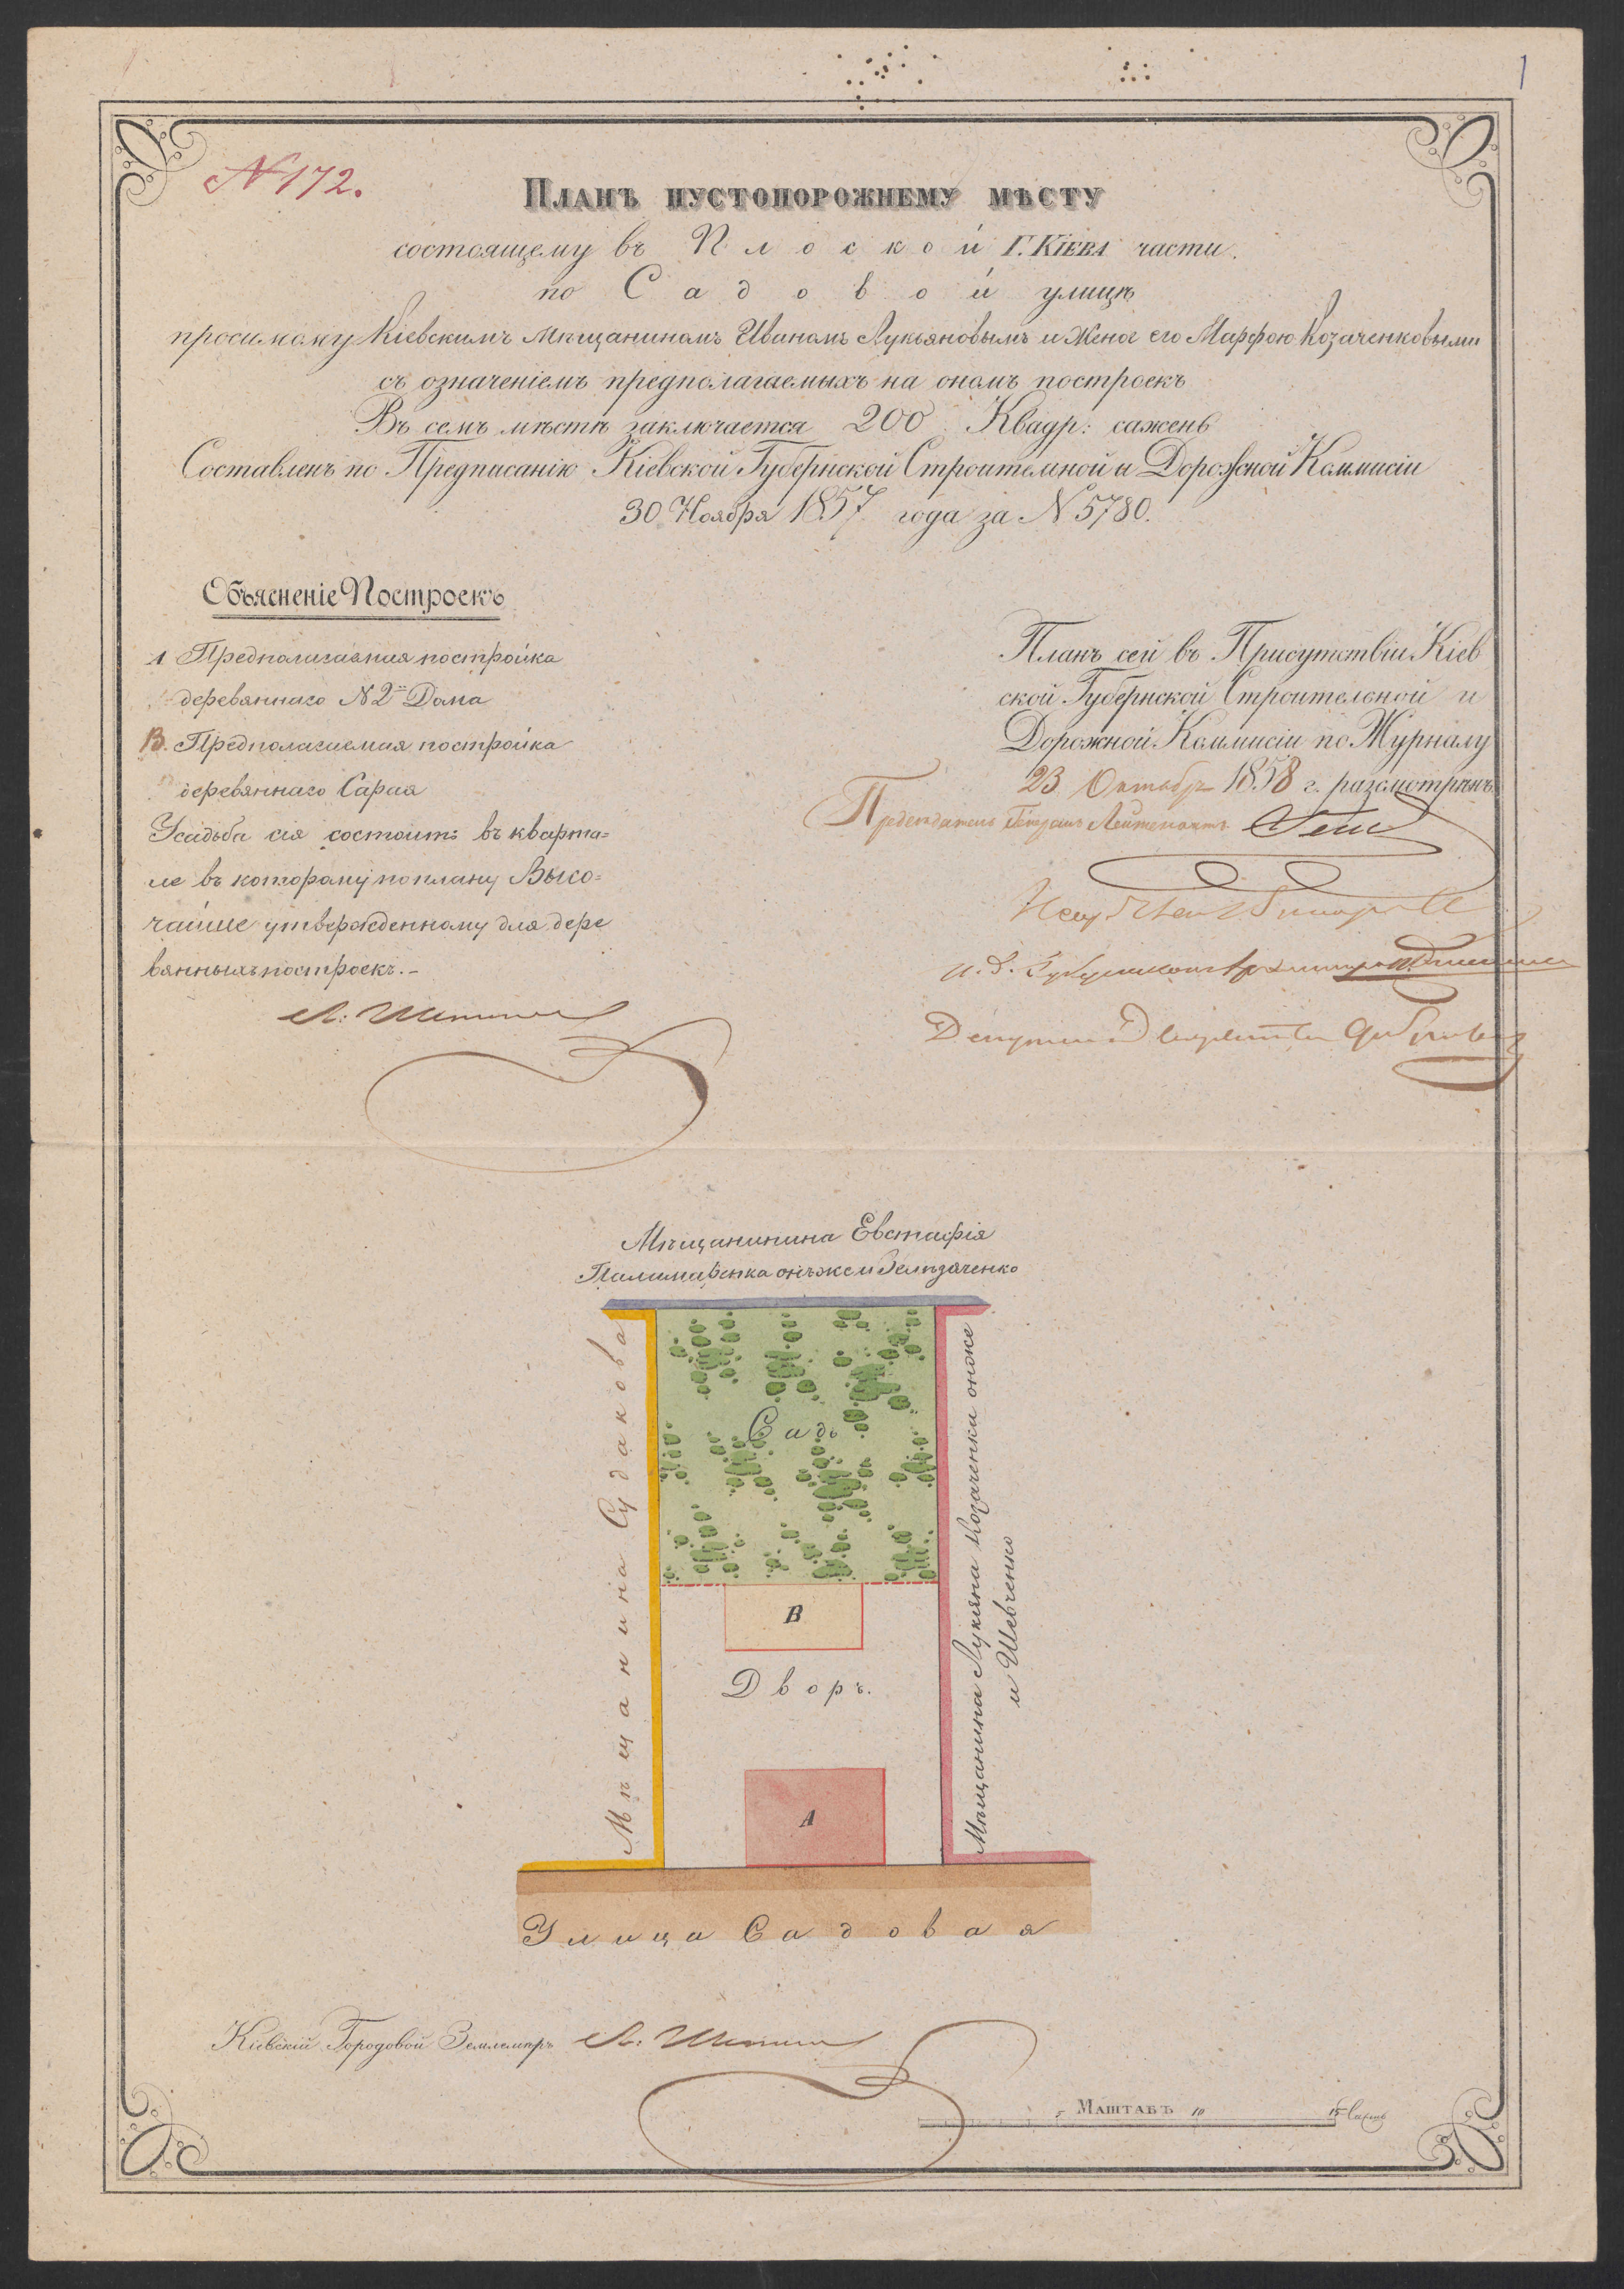 1
N 172.
Планъ пустопорожнему мѣсту
состоящему въ Плоской Г. Кіева части.
по Садовой улицѣ
просимому Кіевскимъ Мѣщаниномъ Иваномъ Лукьяновымъ и Женою его Марфою Козаченковыми
съ означеніемъ предполагаемыхъ на ономъ построекъ
Въ семъ мѣстѣ заключается 200 Квадр: сажень
Составленъ по Предписанію Кіевской Губернской Строительной и Дорожной Коммисіи
30 Ноября 1857 года за N 5780.
Объясненіе Построекъ
A Предполагаемая постройка
деревяннаго N 2го Дома
B. Предполагаемая постройка
деревяннаго Сарая
Усадьба сія состоитъ въ кварта=
ле въ которому по плану Высо=
чайше утвержденному для дере
вянныхъ построекъ.-
Планъ сей въ Присутствіи Кіев
ской Губернской Строительной и
Дорожной Коммисіи по Журналу
23 Октября 1858 г. разсмотрѣнъ
Предсѣдатель Генералъ Лейтенантъ
Мѣщанинина Евстафія
Паламаренка онъ же и
Мѣщанина Судакова
Садъ
Мѣщанина Лукіяна Козаченка онъ же
и Шевченко
B
Дворъ.
A
Улица Садовая
Кіевскій Городовой Землемѣръ
Маштабъ
5 10 15 Сажень